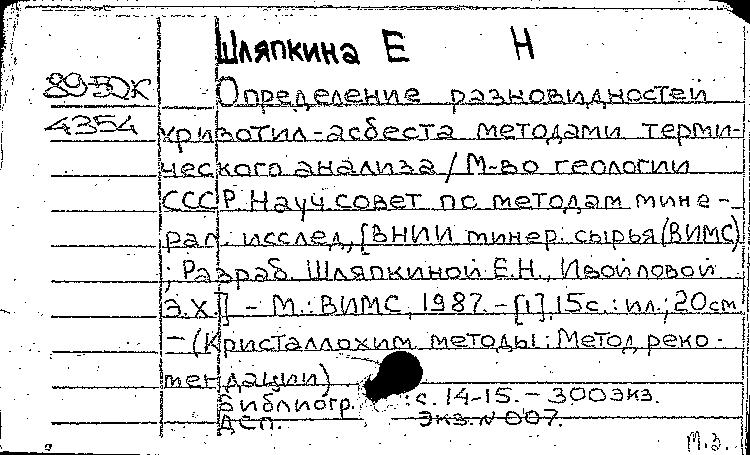 Шляпкина Е Н
89-5ДК Определение разновидностей
4354 хризотил-асбеста методами терми-
ческого анализа / М-во геологии
СССР. Науч. совет по методам мине-
рал. исслед., [ВНИИ минер. сырья (ВИМС)
; Разраб. Шляпкиной Е.Н., Ивойловой
Э.Х.] - М.: ВИМС, 1987. - [1], 15 с. : ил.; 20 см.
- (Кристаллохим. методы: Метод. реко-
мендации)
Библиогр. : с. 14-15. - 300 экз.
ДСП. экз. N 007.
М.З.